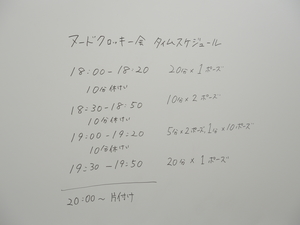 ヌードクロッキー会 タイムスケジュール
18:00-18:20 20分×1ポーズ
10分休けい
18:30-18:50 10分×2ポーズ
10分休けい
19:00-19:20 5分×2ポーズ1分×10ポーズ
10分休けい
19:30-19:50 20分×1ポーズ
20:00~片付け